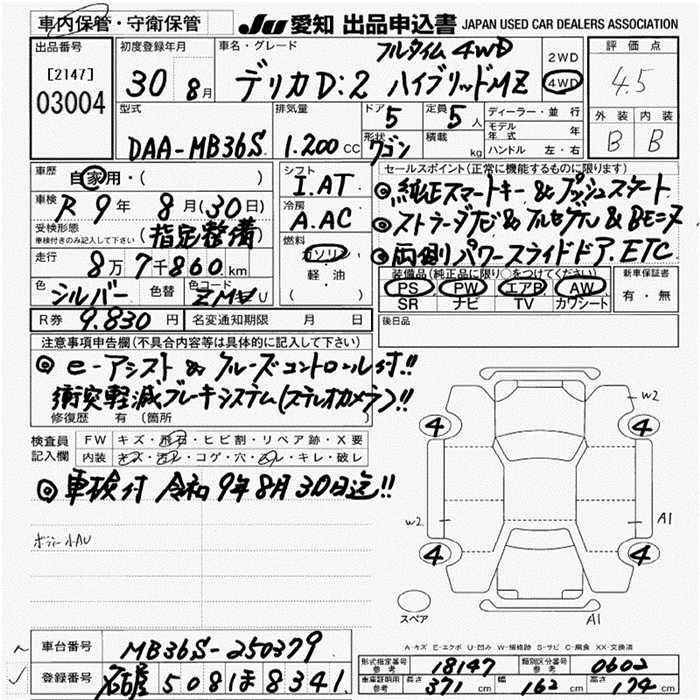 車内保管・守衛保管
JU 愛知 出品申込書 JAPAN USED CAR DEALERS ASSOCIATION
出品番号
[2147]
03004
初度登録年月
30 8月
車名・グレード
フルタイム 4WD
デリカD:2 ハイブリッドMZ
2WD
4WD
評価点
4.5
外装 内装
B B
型式
DAA-MB36S
排気量
1.200 CC
ドア 5
定員 5人
形状 ワゴン
積載 kg
ディーラー・並行
モデル年式 年
ハンドル 左・右
車歴 自家用・( )
車検 R 9年 8月(30日)
受検形態
車検付きのみ記入して下さい (指定整備)
走行 8万7千860km
色 シルバー 色替 色コード ZMU
R券 9.830円 名変通知期限 月 日
シフト
I.AT
冷房
A.AC
燃料
ガソリン
軽・油
( )
セールスポイント(正常に機能するものに限ります)
◎純正スマートキー & プッシュスタート
◎ストラーダナビ & フルセグTV & Bモニタ
◎両側パワースライドドア.ETC
装備品(純正品に限り○をつけてください)
PS PW エアB AW
SR ナビ TV カワシート
新車保証書
有・無
後日品
注意事項申告欄(不具合内容等は具体的に記入して下さい)
◎ e-アシスト & クルーズコントロール付!!
衝突軽減ブレーキシステム(ステレオカメラ)!!
修復歴 有 (箇所
検査員記入欄
FW キズ・飛石・ヒビ割・リペア跡・X要
内装 キズ・汚レ・コゲ・穴・スレ・キレ・破レ
◎ 車検付 令和9年8月30日迄!!
ボデー小AU
4 4
4 4
W2
W2
A1
A1
スペア
A-キズ E-エクボ U-凹み W-補修跡 S-サビ C-腐食 XX-交換済
車台番号 MB36S-250379
登録番号 名古屋 508 ほ 8341
形式指定番号 参考 18147
類別区分番号 参考 0602
車庫証明用 参考 長さ 371cm 幅 162cm 高さ 174cm